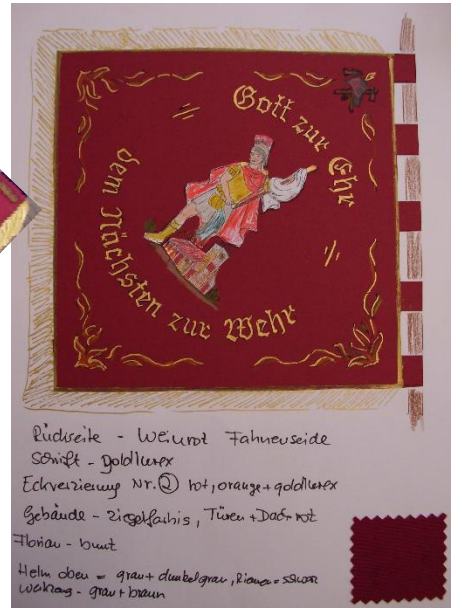 Gott zur Ehr
dem Nächsten zur Wehr
Rückseite - Weinrot Fahnenseide
Schrift - goldlurex
Eckverzierung Nr. ② rot, orange + goldlurex
Gebäude - ziegelfarbig, Türen + Dach rot
Florian - bunt
Helm oben = grau + dunkelgrau, Riemen = schwarz
grau + braun